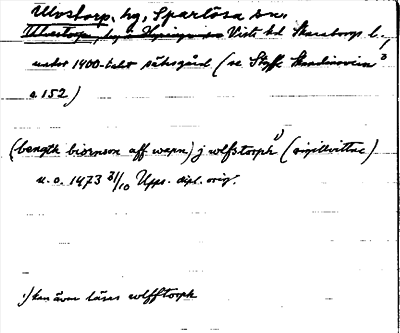 Ulvstorp, hg, Sparlösa sn,
Ulvestorp, by i Viste hd Skaraborgs l.,
under 1400-talet sätesgård (se Steffe Skandinavien 3
s. 152)
(bength biornson aff wapn) j wlfstorph 1) (sigillvittne)
u. o. 1473 31/10 Upps. dipl. orig.
1) kan även läsas wlfftorph